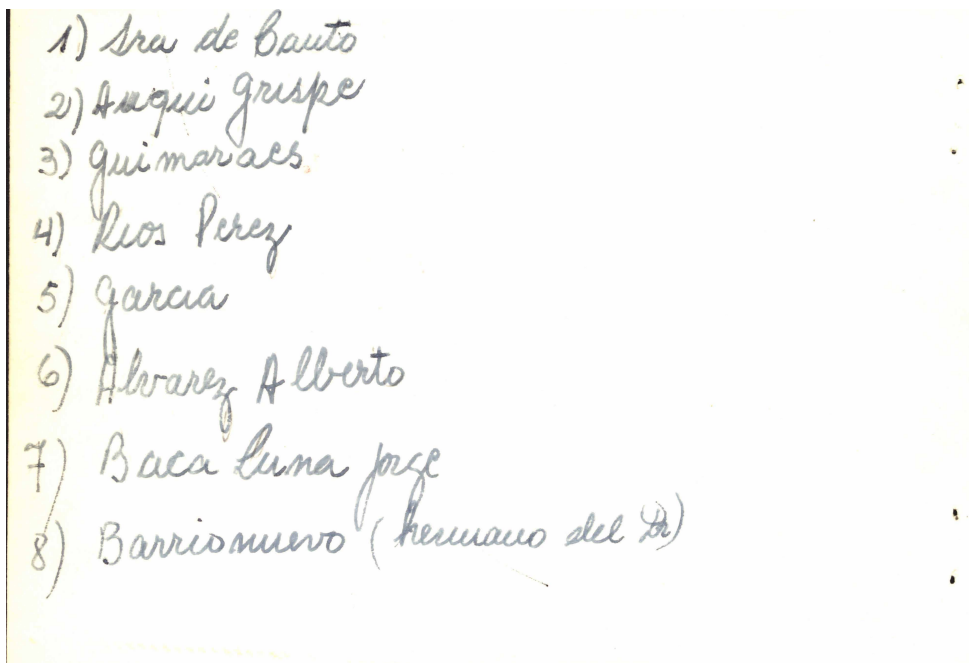 1) Sra de Cauto
2) Auqui Grispe
3) Guimaraes
4) Rios Perez
5) Garcia
6) Alvarez Alberto
7) Baca Luna Jorge
8) Barrionuevo (hermano del Dr)